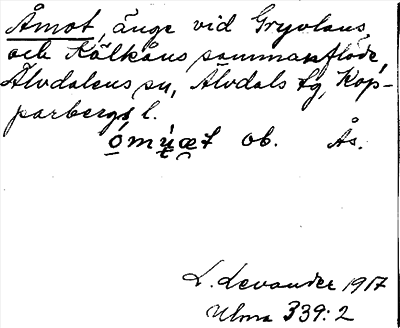 Åmot, änge vid Gryvlans
och Kälkåns sammanflöde,
Älvdalens sn, Älvdals tg, Kop-
parbergs l.
ob. Ås.
L. Levander 1917
Ulma 339:2